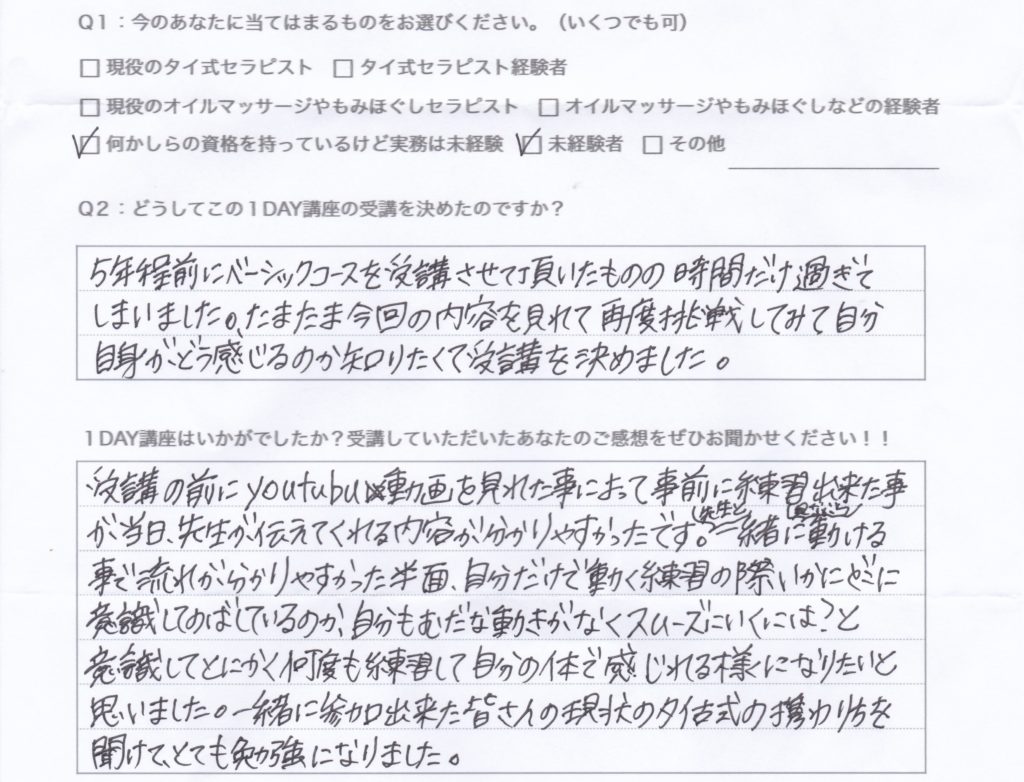 Q1:今のあなたに当てはまるものをお選びください。(いくつでも可)
□ 現役のタイ式セラピスト □ タイ式セラピスト経験者
□ 現役のオイルマッサージやもみほぐしセラピスト □ オイルマッサージやもみほぐしなどの経験者
☑ 何かしらの資格を持っているけど実務は未経験 ☑ 未経験者 □ その他
Q2:どうしてこの1DAY講座の受講を決めたのですか?
5年程前にベーシックコースを受講させて頂いたものの時間だけ過ぎて
しまいました。たまたま今回の内容を見れて再度挑戦してみて自分
自身がどう感じるのか知りたくて受講を決めました。
1DAY講座はいかがでしたか?受講していただいたあなたのご感想をぜひお聞かせください!!
受講の前にyoutubu動画を見れた事によって事前に練習出来た事
が当日、先生が伝えてくれる内容が分かりやすかったです。(先生と)一緒に(見ながら)動ける
事で流れが分かりやすかった半面、自分だけで動く練習の際いかにどこに
意識してのばしているのか、自分もむだな動きがなくスムーズにいくには?と
意識してとにかく何度も練習して自分の体で感じれる様になりたいと
思いました。一緒に参加出来た皆さんの現状のタイ古式の携わり方を
聞けて、とても勉強になりました。